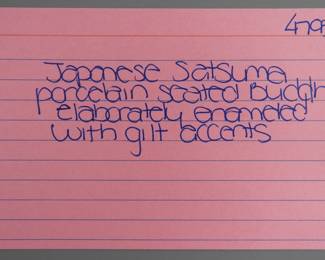 Japanese Satsuma
porcelain seated Buddh
elaborately enameled
with gilt accents